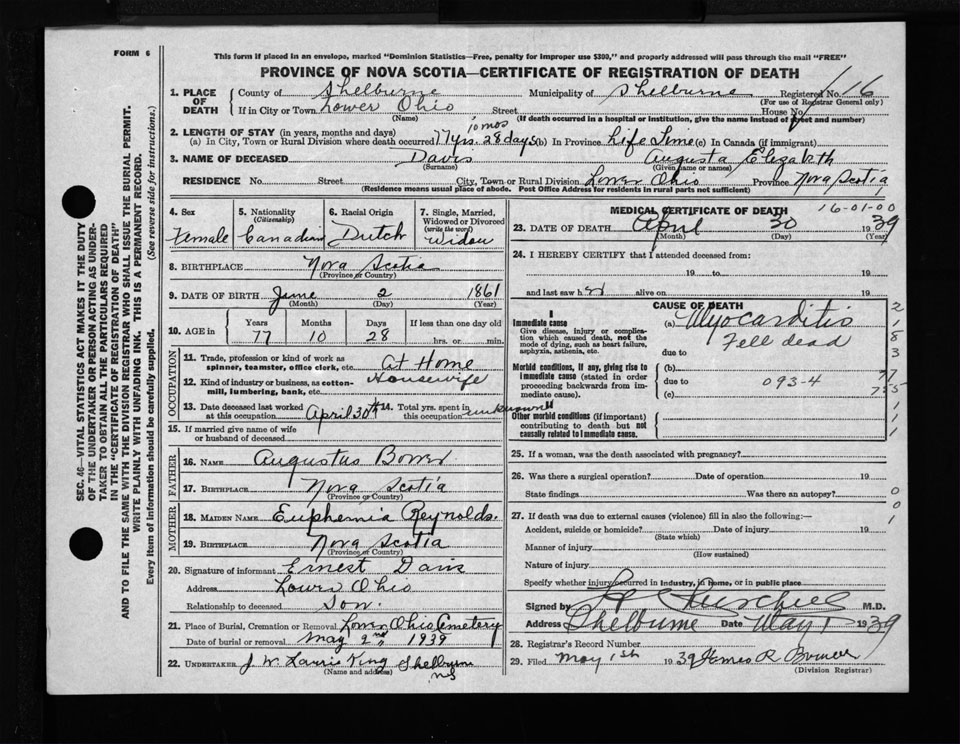 FORM 6
This form if placed in an envelope, marked "Dominion Statistics—Free, penalty for improper use $300," and properly addressed will pass through the mail "FREE"
PROVINCE OF NOVA SCOTIA—CERTIFICATE OF REGISTRATION OF DEATH
SEC. 46—VITAL STATISTICS ACT MAKES IT THE DUTY
OF THE UNDERTAKER OR PERSON ACTING AS UNDER-
TAKER TO OBTAIN ALL THE PARTICULARS REQUIRED
IN THE "CERTIFICATE OF REGISTRATION OF DEATH"
AND TO FILE THE SAME WITH THE DIVISION REGISTRAR WHO SHALL ISSUE THE BURIAL PERMIT.
WRITE PLAINLY WITH UNFADING INK. THIS IS A PERMANENT RECORD.
Every item of information should be carefully supplied. (See reverse side for instructions.)
1. PLACE OF DEATH County of Shelburne Municipality of Shelburne Registered No. 16
(For use of Registrar General only)
If in City or Town Lower Ohio Street House No
(Name) (If death occurred in a hospital or institution, give the name instead of street and number)
2. LENGTH OF STAY (in years, months and days)
(a) In City, Town or Rural Division where death occurred 77 yrs. 10 mos 28 days (b) In Province Life Time (c) In Canada (if immigrant)
3. NAME OF DECEASED Davis Augusta Elizabeth
(Surname) (Given name or names)
RESIDENCE No. Street City, Town or Rural Division Lower Ohio Province Nova Scotia
(Residence means usual place of abode. Post Office Address for residents in rural parts not sufficient)
4. Sex Female
5. Nationality (Citizenship) Canadian
6. Racial Origin Dutch
7. Single, Married, Widowed or Divorced (write the word) Widow
8. BIRTHPLACE Nova Scotia
(Province or Country)
9. DATE OF BIRTH June 2 1861
(Month) (Day) (Year)
10. AGE in Years 77 Months 10 Days 28 If less than one day old hrs. or min.
OCCUPATION
11. Trade, profession or kind of work as spinner, teamster, office clerk, etc. At Home
12. Kind of industry or business, as cotton-mill, lumbering, bank, etc. Housewife
13. Date deceased last worked at this occupation April 30th 14. Total yrs. spent in this occupation unknown
15. If married give name of wife or husband of deceased
FATHER
16. NAME Augustus Bower
17. BIRTHPLACE Nova Scotia
(Province or Country)
MOTHER
18. MAIDEN NAME Euphemia Reynolds.
19. BIRTHPLACE Nova Scotia
(Province or Country)
20. Signature of informant Ernest Davis
Address Lower Ohio
Relationship to deceased Son.
21. Place of Burial, Cremation or Removal Lower Ohio Cemetery
Date of burial or removal May 2nd 1939
22. UNDERTAKER J. W. Laurie King Shelburne
NS
(Name and address)
MEDICAL CERTIFICATE OF DEATH 16-01-00
23. DATE OF DEATH April 30 1939
(Month) (Day) (Year)
24. I HEREBY CERTIFY that I attended deceased from:
19 to 19
and last saw h er alive on 19
CAUSE OF DEATH
I
Immediate cause
Give disease, injury or complication which caused death, not the mode of dying, such as heart failure, asphyxia, asthenia, etc.
(a) Myocarditis
Fell dead
due to
Morbid conditions, if any, giving rise to immediate cause (stated in order proceeding backwards from immediate cause)
(b)
due to 093-4
(c)
II
Other morbid conditions (if important) contributing to death but not causally related to immediate cause.
25. If a woman, was the death associated with pregnancy?
26. Was there a surgical operation? Date of operation 19
State findings Was there an autopsy?
27. If death was due to external causes (violence) fill in also the following:—
Accident, suicide or homicide? Date of injury 19
(State which)
Manner of injury
(How sustained)
Nature of injury
Specify whether injury occurred in industry, in home, or in public place
Signed by M.D.
Address Shelburne Date May 1 1939
28. Registrar's Record Number
29. Filed May 1st 1939 James R Bower
(Division Registrar)